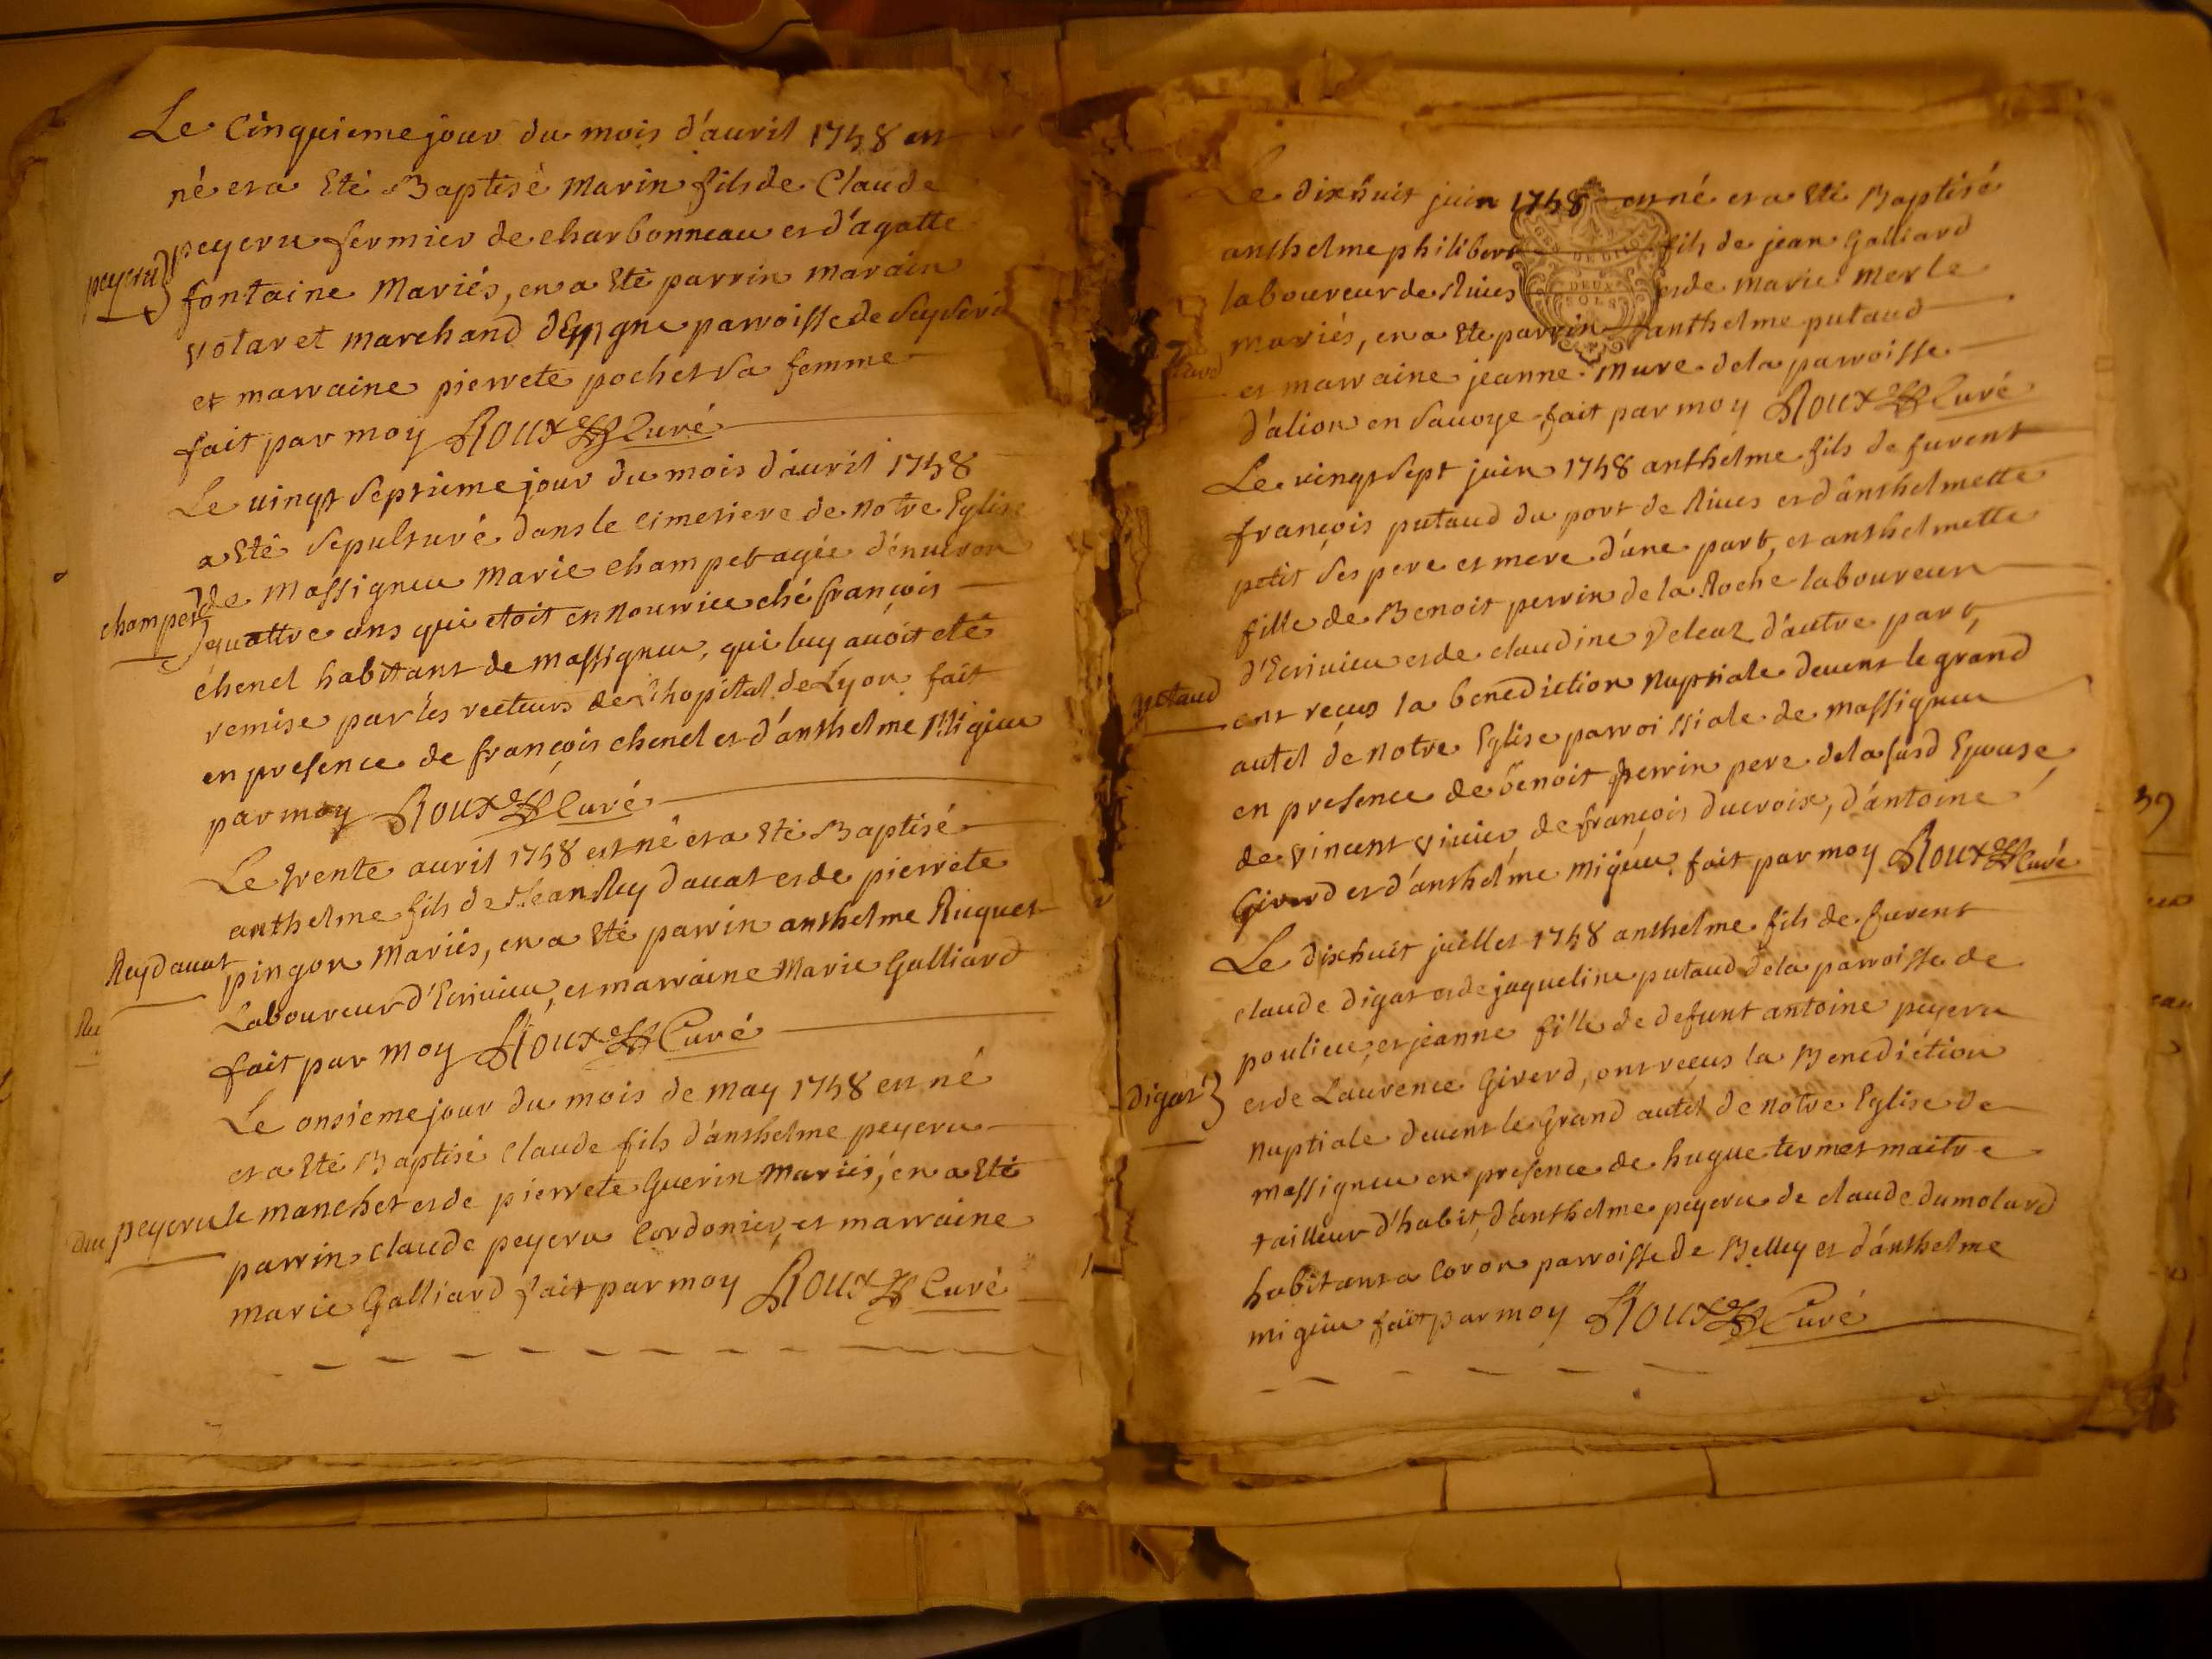 Le Cinquieme jour du mois d'auril 1748 est
né et a Eté Baptisé Marin fils de Claude
peyeru
peyeru fermier de charbonneau et d'agatte
fontaine Mariés, en a Eté parrin marain
votaret marchand parroisse de
et marraine pierrete pochet sa femme
fait par moy Roux Curé
Le vingt septieme jour du mois d'auril 1748
a Eté sepulturé dans le cimetiere de notre Eglise
champet
de Massigneu Marie champet agée d'enuiron
quattre ans qui etoit en nourrice ché françois
chenel habitant de massigneu, qui luy auoit eté
remise par les recteurs de l'hopital de Lyon. fait
en presence de françois chenel et d'anthelme Migieu
par moy Roux Curé
Le trente auril 1748 est né et a Eté Baptisé
anthelme fils de Jean Rey dauat et de pierrete
Rey dauat
pingon Mariés, en a Eté parrin anthelme Riquet
Laboureur d'Ecriuieu, et marraine Marie Galliard
fait par moy Roux Curé
Le onsieme jour du mois de may 1748 est né
et a Eté Baptisé Claude fils d'anthelme peyeru
peyeru
le manchet et de pierrete Guerin Mariés, en a Eté
parrin claude peyeru Cordonier, et marraine
Marie Galliard fait par moy Roux Curé
Le dixhuit juin 1748 est né et a Eté Baptisé
anthelme philibert fils de jean Galliard
GEN DE DIJON
laboureur de Riues et de marie Merle
DEUX SOLS
mariés, en a Eté parrin anthelme putaud
et marraine jeanne Mure de la parroisse
d'alion en sauoye fait par moy Roux Curé
Le vingt sept juin 1748 anthelme fils de furent
françois putaud du port de Riues et d'anthelmette
petit ses pere et mere d'une part, et anthelmette
fille de Benoit perrin de la Roche laboureur
d'Ecriuieu et de claudine Deleaz d'autre part,
putaud
ont reçus la benediction Nuptiale deuent le grand
autel de notre Eglise parroissiale de massigneu
en presence de benoit perrin pere de la susd Epouse,
de vincent viuier, de françois ducroix, d'antoine
Giverd et d'anthelme migieu, fait par moy Roux Curé
Le dixhuit juillet 1748 anthelme fils de furent
claude digat et de jaqueline putaud de la parroisse de
poulieu, et jeanne fille de defunt antoine peyeru
digat
et de Laurence Giverd, ont reçus la Benediction
Nuptiale deuent le Grand autel de notre Eglise de
massigneu en presence de hugue termet maitre
tailleur d'habit, d'anthelme peyeru de claude dumolard
habitant a Coron parroisse de Belley et d'anthelme
migieu fait par moy Roux Curé
39